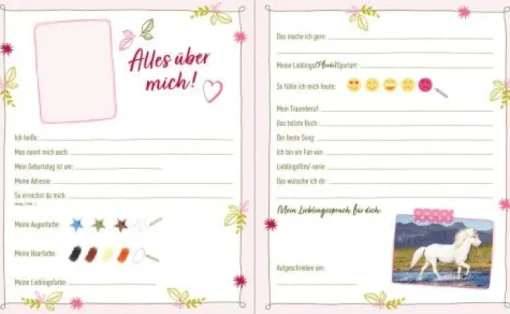 Alles über
mich!
Ich heiße:
Man nennt mich auch:
Mein Geburtstag ist am:
Meine Adresse:
So erreichst du mich:
Meine Augenfarbe:
Meine Haarfarbe:
Meine Lieblingsfarbe:
Das mache ich gern:
Meine Lieblings(Pferde)Sportart:
So fühle ich mich heute:
Mein Traumberuf:
Das tollste Buch:
Der beste Song:
Ich bin ein Fan von:
Lieblingsfilm/-serie:
Das wünsche ich dir:
Mein Lieblingsspruch für dich:
Aufgeschrieben am: